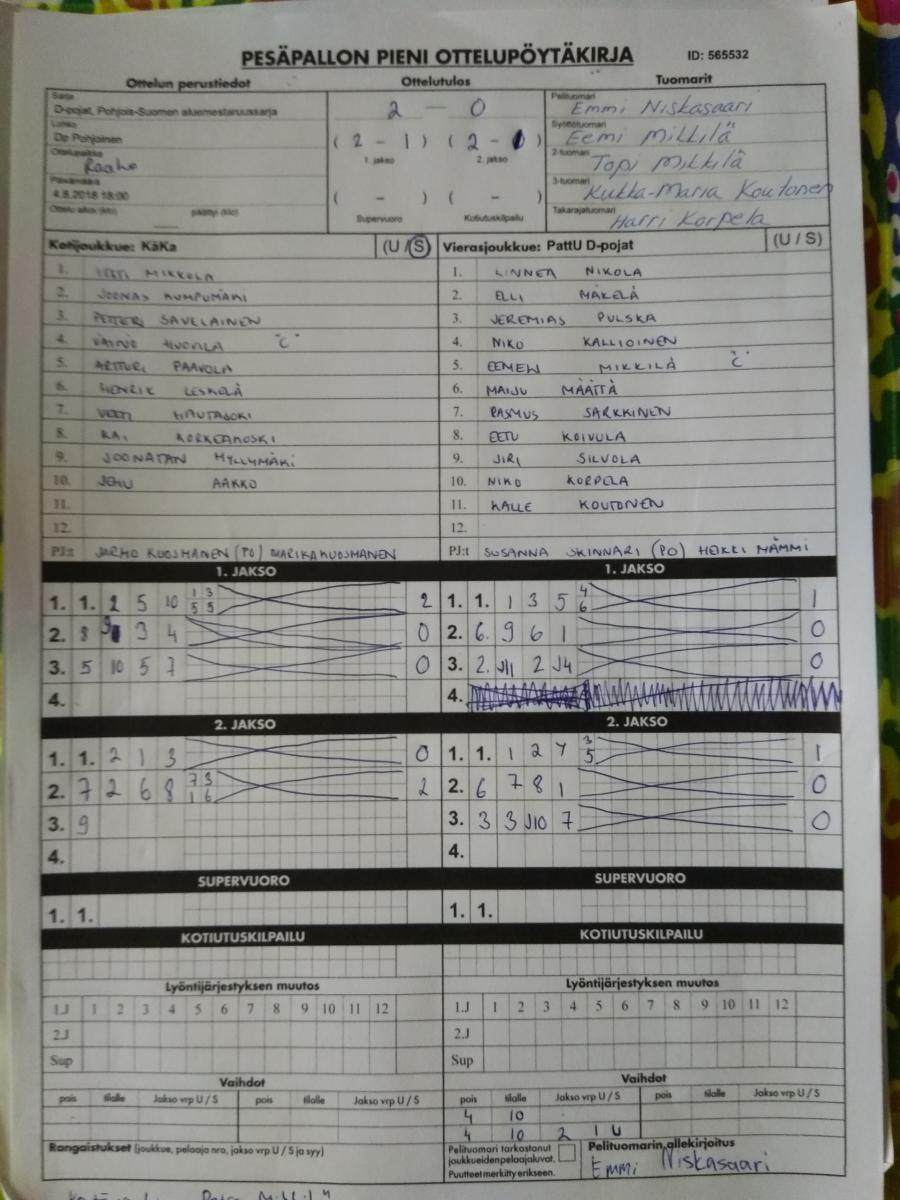 PESÄPALLON PIENI OTTELUPÖYTÄKIRJA ID: 565532
Ottelun perustiedot Ottelutulos Tuomarit
Sarja
D-pojat, Pohjois-Suomen aluemestaruussarja
Lohko
Dp Pohjoinen
Ottelupaikka
Raahe
Päivämäärä
4.8.2018 18:00
Ottelu alkoi (klo) päättyi (klo)
2 - 0
( 2 - 1 ) ( 2 - )
1. jakso 2. jakso
( - ) ( - )
Supervuoro Kotiutuskilpailu
Pelituomari
Emmi Niskasaari
Syöttötuomari
Eemi Mikkilä
2-tuomari
Topi Mikkilä
3-tuomari
Kukka-Maria Koutonen
Takarajatuomari
Harri Korpela
Kotijoukkue: KäKa (U / S)
1. MIKKOLA
2. JOONAS KUMPUMÄKI
3. PETTERI SAVELAINEN
4. VÄINÖ HUOVILA "C"
5. ARTTURI PAAVOLA
6. HENRIK LESKELÄ
7. VEETI HAUTAJOKI
8. KAI KORKEAKOSKI
9. JOONATAN MYLLYMÄKI
10. JENU AAKKO
11.
12.
PJ:t JARMO KUOSMANEN (PO) MARIKA KUOSMANEN
Vierasjoukkue: PattU D-pojat (U / S)
1. LINNEA NIKOLA
2. ELLI MÄKELÄ
3. JEREMIAS PULSKA
4. NIKO KALLIOINEN
5. EEMELI MIKKILÄ "C"
6. MAIJU MÄÄTTÄ
7. RASMUS SARKKINEN
8. EETU KOIVULA
9. JIRI SILVOLA
10. NIKO KORPELA
11. KALLE KOUTONEN
12.
PJ:t SUSANNA SKINNARI (PO) HEIKKI NÄMMI
1. JAKSO
1. 1. 2 5 10 1 3 5 5 2
2. 8 9 3 4 0
3. 5 10 5 7 0
4.
1. JAKSO
1. 1. 1 3 5 4 6 1
2. 6. 9 6 1 0
3. 2. J11 2 J4 0
4.
2. JAKSO
1. 1. 2 1 3 0
2. 7 2 6 8 7 3 1 6 2
3. 9
4.
2. JAKSO
1. 1. 1 2 4 3 5 1
2. 6 7 8 1 0
3. 3 3 J10 7 0
4.
SUPERVUORO
1. 1.
SUPERVUORO
1. 1.
KOTIUTUSKILPAILU
Lyöntijärjestyksen muutos
1.J 1 2 3 4 5 6 7 8 9 10 11 12
2.J
Sup
Vaihdot
pois tilalle Jakso vrp U / S pois tilalle Jakso vrp U / S
KOTIUTUSKILPAILU
Lyöntijärjestyksen muutos
1.J 1 2 3 4 5 6 7 8 9 10 11 12
2.J
Sup
Vaihdot
pois tilalle Jakso vrp U / S pois tilalle Jakso vrp U / S
4 10
4 10 2 1 U
Rangaistukset (joukkue, pelaaja nro, jakso vrp U / S ja syy)
Pelituomari tarkastanut
joukkueidenpelaajaluvat.
Puutteet merkitty erikseen.
Pelituomarin allekirjoitus
Emmi Niskasaari